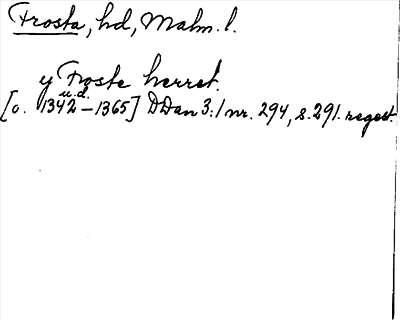 Frosta, hd, Malm. l.
y Froste herret.
u.d.
[o. 1342–1365] DDan 3:1 nr. 294, s. 291. regest.